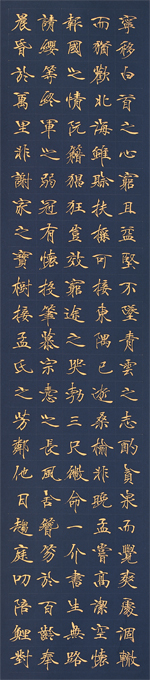 寧移白首之心窮且益堅不墜青雲之志酌貪泉而覺爽處涸轍
而猶歡北海雖賒扶搖可接東隅已逝桑榆非晚孟嘗高潔空懷
報國之情阮籍猖狂豈效窮途之哭勃三尺微命一介書生無路
請纓等終軍之弱冠有懷投筆慕宗愨之長風舍簪笏於百齡奉
晨昏於萬里非謝家之寶樹接孟氏之芳鄰他日趨庭叨陪鯉對